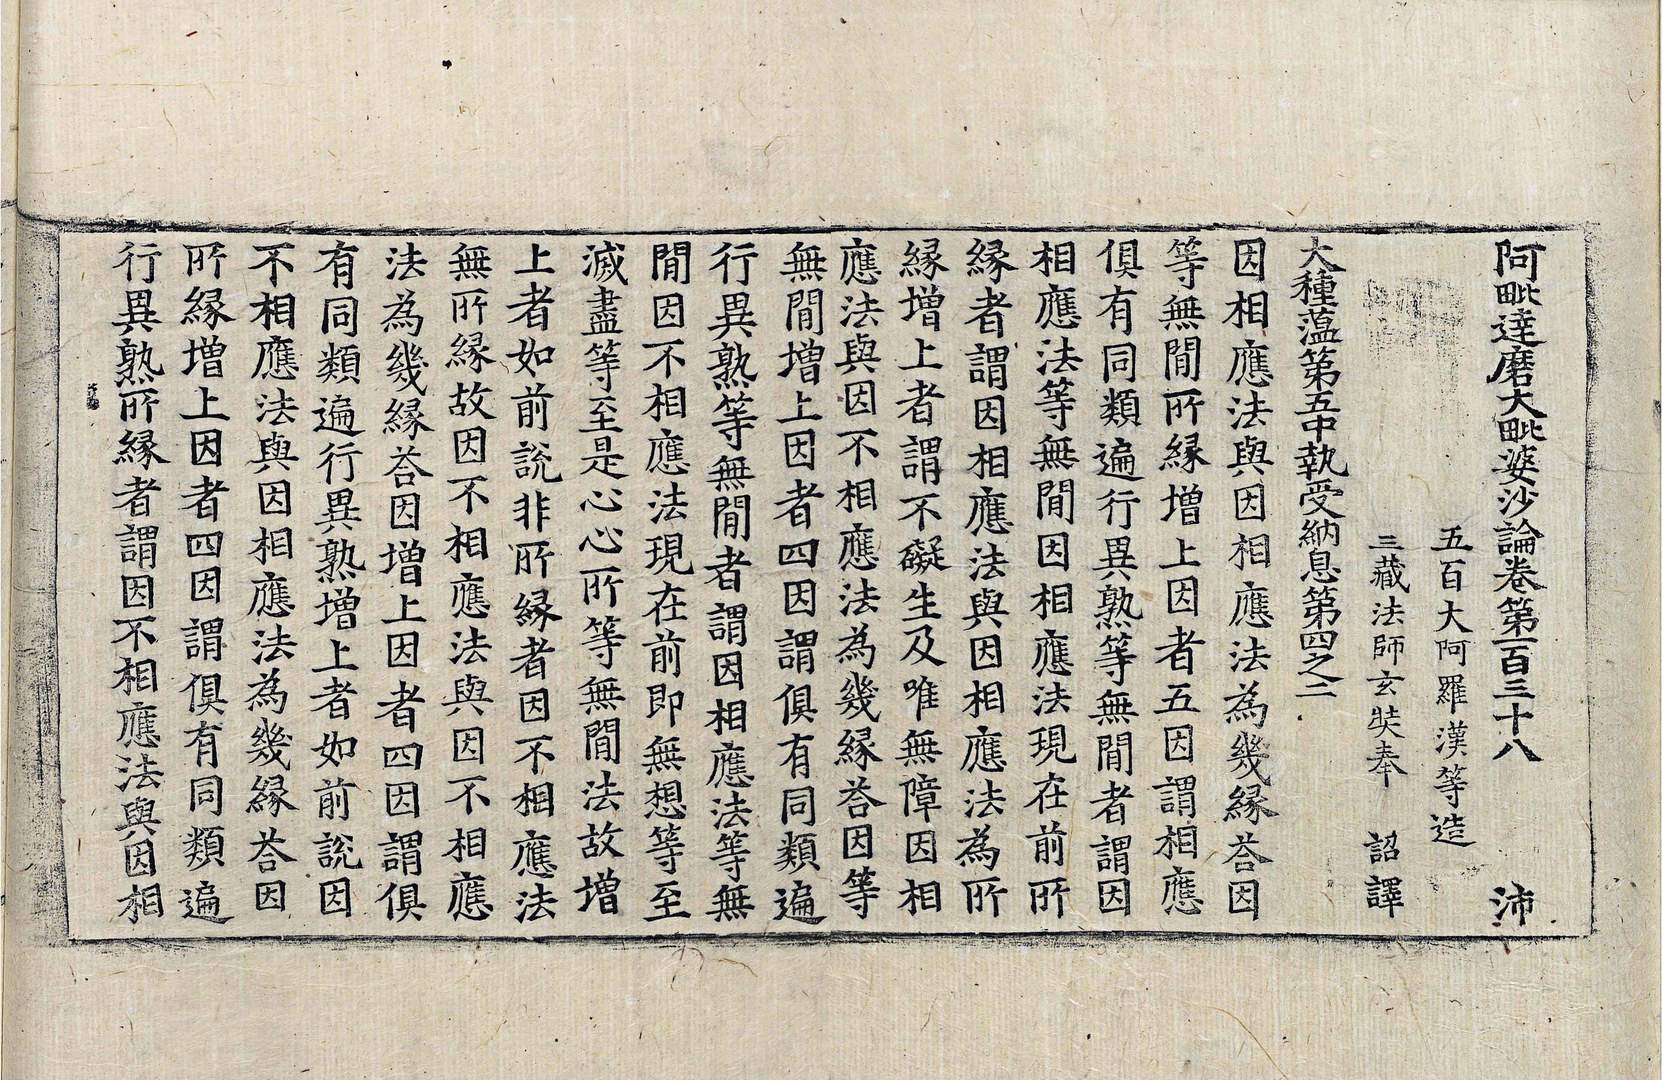 阿毗達磨大毗婆沙論卷第一百三十八 沛
五百大阿羅漢等造
三藏法師玄奘奉 詔譯
大種蘊第五中執受納息第四之二
因相應法與因相應法為幾緣荅因
等無間所緣增上因者五因謂相應
俱有同類遍行異熟等無間者謂因
相應法等無間因相應法現在前所
緣者謂因相應法與因相應法為所
緣增上者謂不礙生及唯無障因相
應法與因不相應法為幾緣荅因等
無間增上因者四因謂俱有同類遍
行異熟等無間者謂因相應法等無
間因不相應法現在前即無想等至
滅盡等至是心心所等無間法故增
上者如前說非所緣者因不相應法
無所緣故因不相應法與因不相應
法為幾緣荅因增上因者四因謂俱
有同類遍行異熟增上者如前說因
不相應法與因相應法為幾緣荅因
所緣增上因者四因謂俱有同類遍
行異熟所緣者謂因不相應法與因相